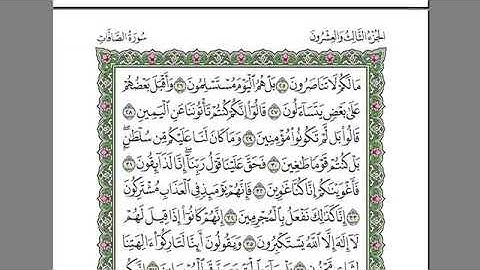 الجزء الثالث والعشرون
سورة الصافات
مَا لَكُمْ لَا تَنَاصَرُونَ ٢٥ بَلْ هُمُ ٱلْيَوْمَ مُسْتَسْلِمُونَ ٢٦ وَأَقْبَلَ بَعْضُهُمْ
عَلَىٰ بَعْضٍ يَتَسَآءَلُونَ ٢٧ قَالُوٓا۟ إِنَّكُمْ كُنتُمْ تَأْتُونَنَا عَنِ ٱلْيَمِينِ ٢٨
قَالُوا۟ بَل لَّمْ تَكُونُوا۟ مُؤْمِنِينَ ٢٩ وَمَا كَانَ لَنَا عَلَيْكُم مِّن سُلْطَٰنٍۭ
بَلْ كُنتُمْ قَوْمًا طَٰغِينَ ٣٠ فَحَقَّ عَلَيْنَا قَوْلُ رَبِّنَآ إِنَّا لَذَآئِقُونَ ٣١
فَأَغْوَيْنَٰكُمْ إِنَّا كُنَّا غَٰوِينَ ٣٢ فَإِنَّهُمْ يَوْمَئِذٍ فِى ٱلْعَذَابِ مُشْتَرِكُونَ
٣٣ إِنَّا كَذَٰلِكَ نَفْعَلُ بِٱلْمُجْرِمِينَ ٣٤ إِنَّهُمْ كَانُوٓا۟ إِذَا قِيلَ لَهُمْ
لَآ إِلَٰهَ إِلَّا ٱللَّهُ يَسْتَكْبِرُونَ ٣٥ وَيَقُولُونَ أَئِنَّا لَتَارِكُوٓا۟ ءَالِهَتِنَا